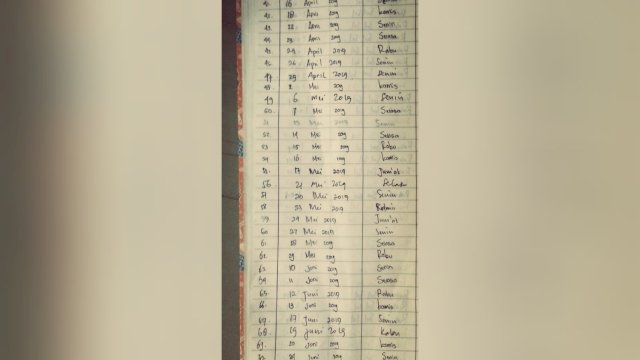 42. 18 April 2019 kamis
43. 22 April 2019 Senin
44. 23 April 2019 Selasa
45. 24 April 2019 Rabu
46. 26 April 2019 Senin
47. 29 April 2019 Senin
48. 2 Mei 2019 kamis
49 6 Mei 2019 Senin
50. 7 Mei 2019 Selasa
51 13 Mei 2019 Senin
52. 14 Mei 2019 Selasa
53. 15 Mei 2019 Rabu
54. 16 Mei 2019 kamis
55. 17 Mei 2019 Jum'at
56 21 Mei 2019
57 20 Mei 2019 Senin
58 23 Mei 2019
59. 24 Mei 2019 Jum'at
60 27 Mei 2019 Senin
61. 28 Mei 2019 Selasa
62. 29 Mei 2019 Rabu
63. 10 Juni 2019 Senin
64. 11 Juni 2019 Selasa
65. 12 Juni 2019 Rabu
66. 13 Juni 2019 kamis
67. 17 Juni 2019 Senin
68. 19 Juni 2019 Rabu
69. 20 Juni 2019 kamis
Juni 2019 Senin